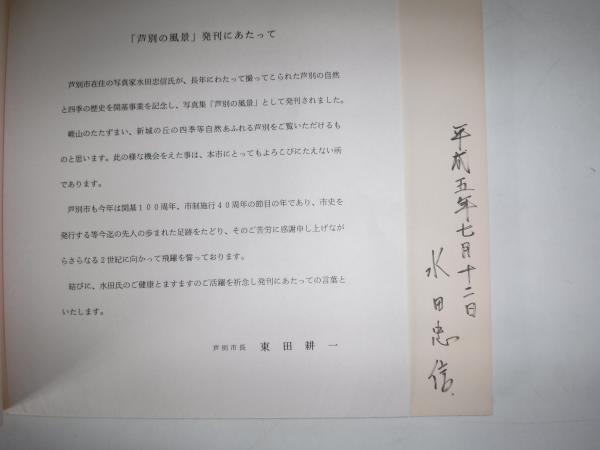 「芦別の風景」発刊にあたって
芦別市在住の写真家水田忠信氏が、長年にわたって撮ってこられた芦別の自然
と四季の歴史を開基事業を記念し、写真集「芦別の風景」として発刊されました。
崕山のたたずまい、新城の丘の四季等自然あふれる芦別をご覧いただけるも
のと思います。此の様な機会をえた事は、本市にとってもよろこびにたえない所
であります。
芦別市も今年は開基100周年、市制施行40周年の節目の年であり、市史を
発行する等今迄の先人の歩まれた足跡をたどり、そのご苦労に感謝申し上げなが
らさらなる2世紀に向かって飛躍を誓っております。
結びに、水田氏のご健康とますますのご活躍を祈念し発刊にあたっての言葉と
いたします。
芦別市長 東田耕一
平成五年七月十二日
水田忠信